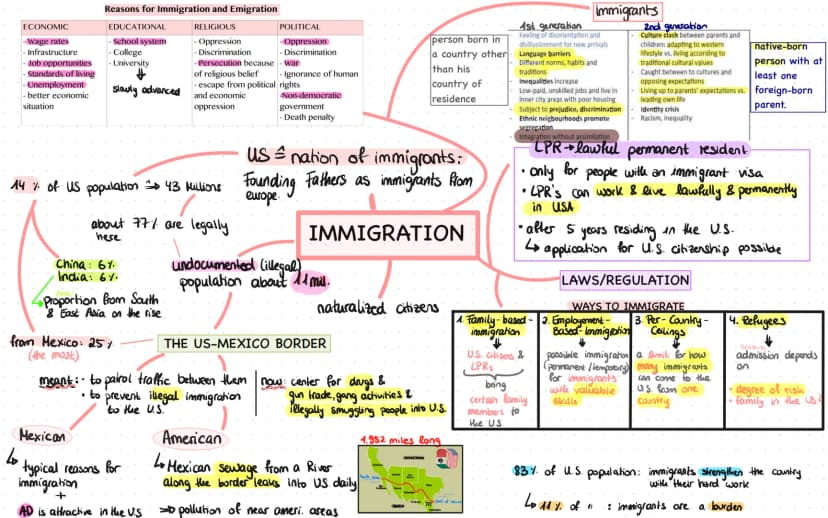 Reasons for Immigration and Emigration
ECONOMIC
- Wage rates
- Infrastructure
- Job opportunities
- Standards of living
- Unemployment
- better economic
situation
EDUCATIONAL
- School system
- College
- University
slowly advanced
RELIGIOUS
- Oppression
- Discrimination
- Persecution because
of religious belief
- escape from political
and economic
oppression
POLITICAL
- Oppression
- Discrimination
- War
- Ignorance of human
rights
- Non-democratic
government
- Death penalty
Immigrants
person born in
a country other
than his
country of
residence
1st generation
Feeling of disorientation and
disillusionment for new arrivals
Language barriers
Different norms, habits and
traditions
Inequalities increase
Low-paid, unskilled jobs and live in
inner city areas with poor housing
Subject to prejudice, discrimination
Ethnic neigbourhoods promote
segregation
Integration without assimilation
2nd generation
Culture clash between parents and
children: adapting to western
lifestyle vs. living according to
traditional cultural values
Caught between to cultures and
opposing expectations
Living up to parents' expectations vs.
leading own life
Identity crisis
Racism, inequality
native-born
person with at
least one
foreign-born
parent.
US ≙ nation of immigrants:
Founding Fathers as immigrants from
europe.
14 % of US population ⇒ 43 Millions
about 77% are legally
here
China: 6%
India: 6%
Proportion from South
& East Asia on the rise
undocumented (illegal)
population about 11 mil.
IMMIGRATION
naturalized citizens
LPR → lawful permanent resident
• only for people with an immigrant visa
• LPR's can work & live lawfully & permanently
in USA
• after 5 years residing in the U.S.
↳ application for U.S. citizenship possible
LAWS/REGULATION
WAYS TO IMMIGRATE
1. Family-based-
immigration
U.S. citizens &
LPRs
bring
certain family
members to
the U.S.
2. Employment-
Based-Immigration
possible immigration
(permanent/temporary)
for immigrants
with valuable
skills
3. Per-Country-
Ceilings
a limit for how
many immigrants
can come to the
U.S. from one
country
4. Refugees
admission depends
on
• degree of risk
• family in the US
from Mexico: 25%
(the most)
THE US-MEXICO BORDER
meant: • to patrol traffic between them
• to prevent illegal immigration
to the U.S.
now: center for drugs &
gun trade, gang activities &
illegally smuggling people into U.S.
Mexican
↳ typical reasons for
immigration
+
AD is attractive in the US
American
↳ Mexican sewage from a River
along the border leaks into US daily
⇒ pollution of near ameri. areas
1.952 miles long
83% of U.S. population: immigrants strengthen the country
with their hard work
↳ 11% of " : immigrants are a burden